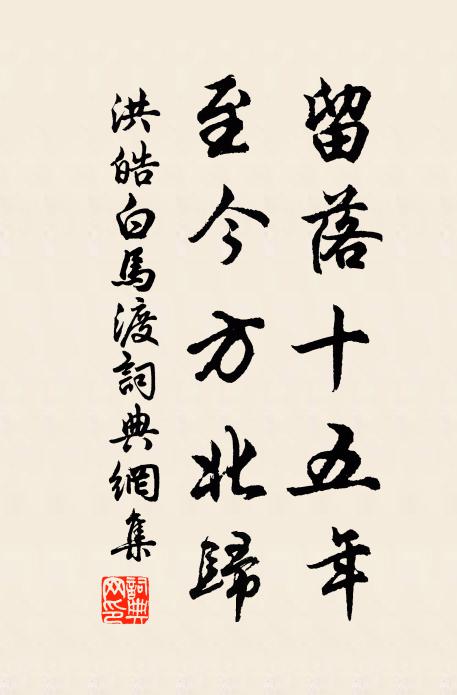 留落十五年
至今方北歸
洪皓白馬渡詞典網集
詞典網印